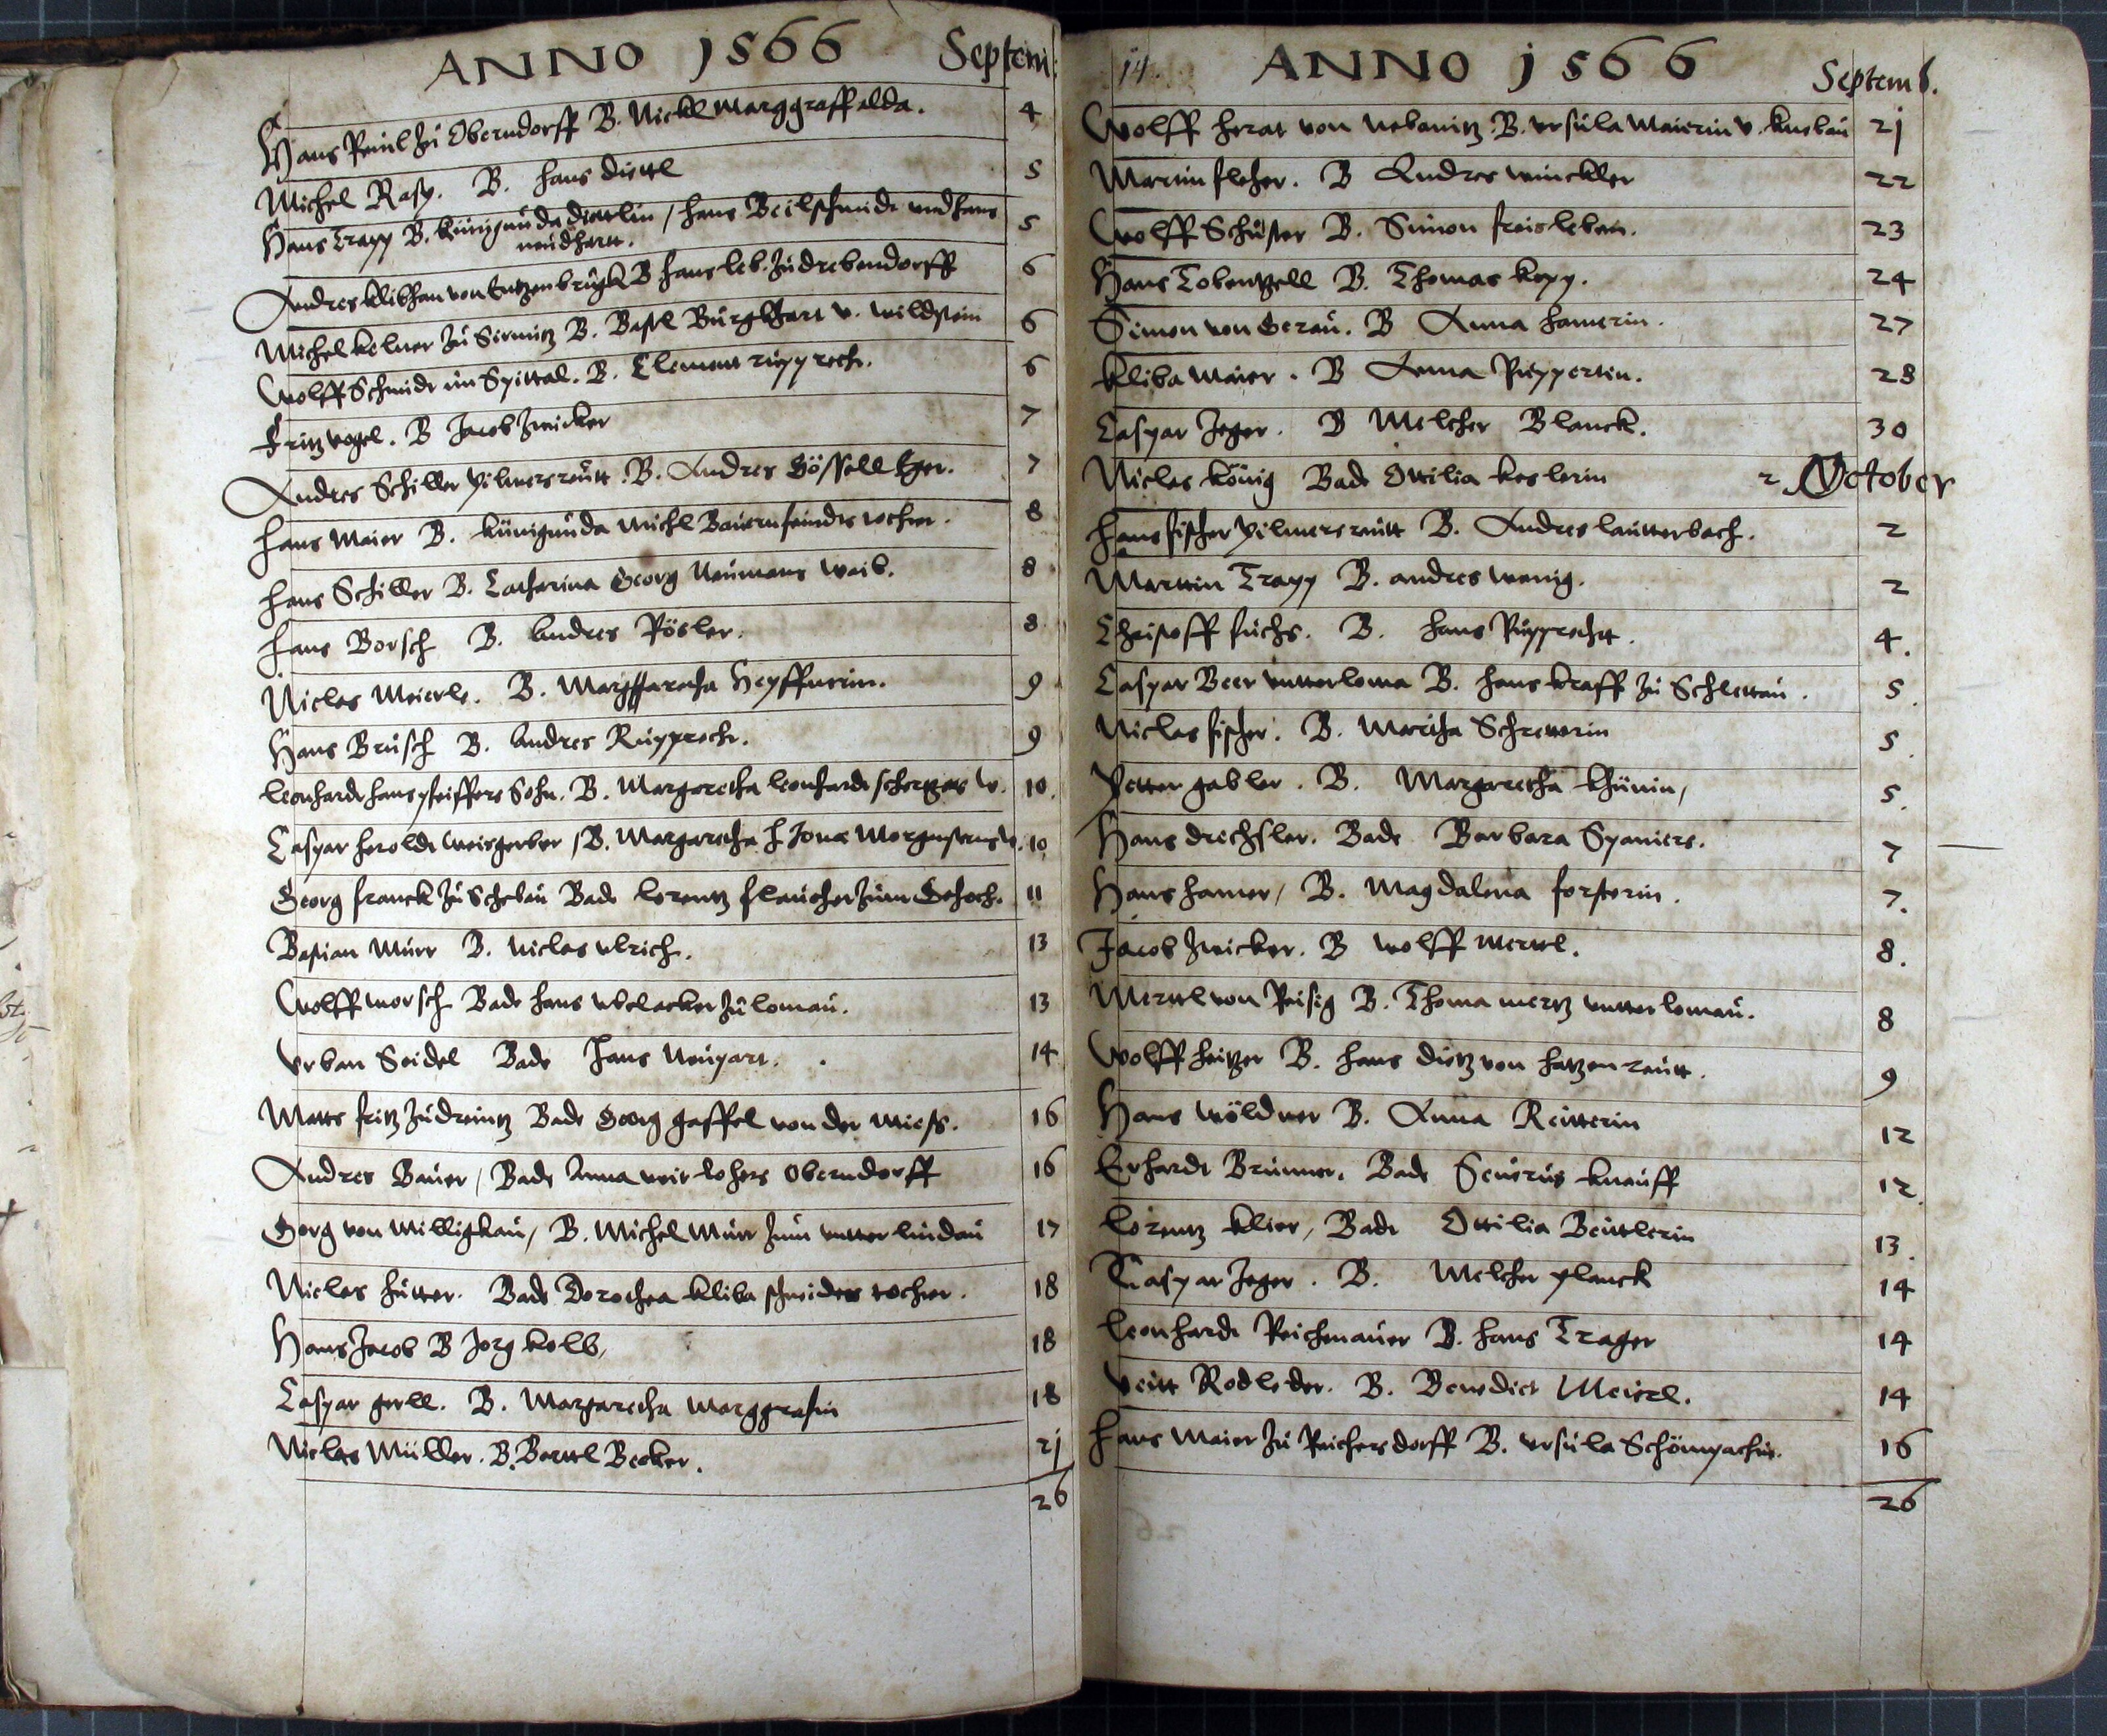 ANNO 1566 Septem:
Hans Peül zu Oberndorff B. Nickl Marggraff alda. 4
Michel Rasp. B. Hans Diettl 5
Hans Trapp B. Künigunda Diettlin / Hans Beilschmidt und Hans 5
neüdhartt.
Andres Klibhan von B Hans leb. zu drebendorff 6
Michel Kelner zu Sirmitz B. Bastl Burghart v. Wildstein 6
Wolff Schmidt im Spittal. B. Clement rupprech. 6
Fritz vogel. B Jacob Zwicker 7
Andres Schiller pilmersreütt. B. Andres Gössell Eger. 7
Hans Maier B. Künigunda Michl Bauernfeindts tochter. 8
Hans Schiller B. Catharina Georg Neumans Weib. 8
Hans Borsch B. Andres Rösler. 8
Niclas Meierle. B. Margaretha Heyffnerin. 9
Hans Brusch B. Andres Rupprech. 9
Leonhardt Hans pfeiffers Sohn. B. Margaretha leonhardt schertzers W. 10.
Caspar Heroldt Weisgerber / B. Margaretha H Jonae Morgnsterns W. 10
Georg Franck zu Scheba Bade lorentz fleischer zum Gehech. 11
Bastian Mürr B. Niclas Ulrich. 13
Wolff worsch Bade Hans ubelacker zu lomau. 13
Urban Seidel Bade Hans Neupart. 14
Matts Fritz zu dreüntz Bade Georg gassel von der Miess. 16
Andres Bauer / Bade Anna veit lohers Oberndorff 16
Gorg von Milligkau / B. Michel Mürr zum unter lindau 17
Niclas Hütter. Bade Dorothea Kliba schneiders tochter. 18
Hans Jacob B Jorg Kolb, 18
Caspar gerll. B. Margaretha Marggrafin 18
Niclas Müller. B. Barttl Becker. 21
26
14. ANNO 1566 Septemb.
Wolff Herat von Nebanitz. B. Ursula Maierin v. 21
Martin fleher. B Andres winckler 22
Wolff Schuster B. Simon freisleben. 23
Hans Tobentzell B. Thomas kopp. 24
Simon von Gerau. B Anna Hamerin. 27
Kliba Maier. B Anna Ruppertin. 28
Caspar Jeger. B Melcher Blanck. 30
Niclas König Bade Ottilia keslerin 2 October
Hans fischer pilmersreütt B. Andres lautterbach. 2
Marttin Trapp B. andres wenig. 2
Christoff fuchs. B. Hans Rupprechtt. 4.
Caspar Beer unterloma B. Hans kraff zu Schlettau. 5.
Niclas fischer. B. Martha Schretterin 5.
Petter gabler. B. Margaretha Khünin, 5.
Hans drechsler. Bade Barbara Spaniers. 7
Hans Hamer / B. Magdalena forsterin. 7.
Jacob Zwicker. B Wolff Merttl. 8.
Merttl von Reisig B. Thoma mertz unter lomau. 8
Wolff Heitzer B. Hans dietz von Hatzenreütt. 9
Hans Wöldner B. Anna Reitterin 12
Erhardt Brunner. Bade Severus Knauff 12.
Lorentz klier, Bade Ottilia Beuttlerin 13.
Caspar Jeger. B. Melcher planck 14
Leonhardt Reichenauer B. Hans Trager 14
Veitt Rodleder. B. Benedict Meierl. 14
Hans Maier zu Reichersdorff B. Ursula 16
26